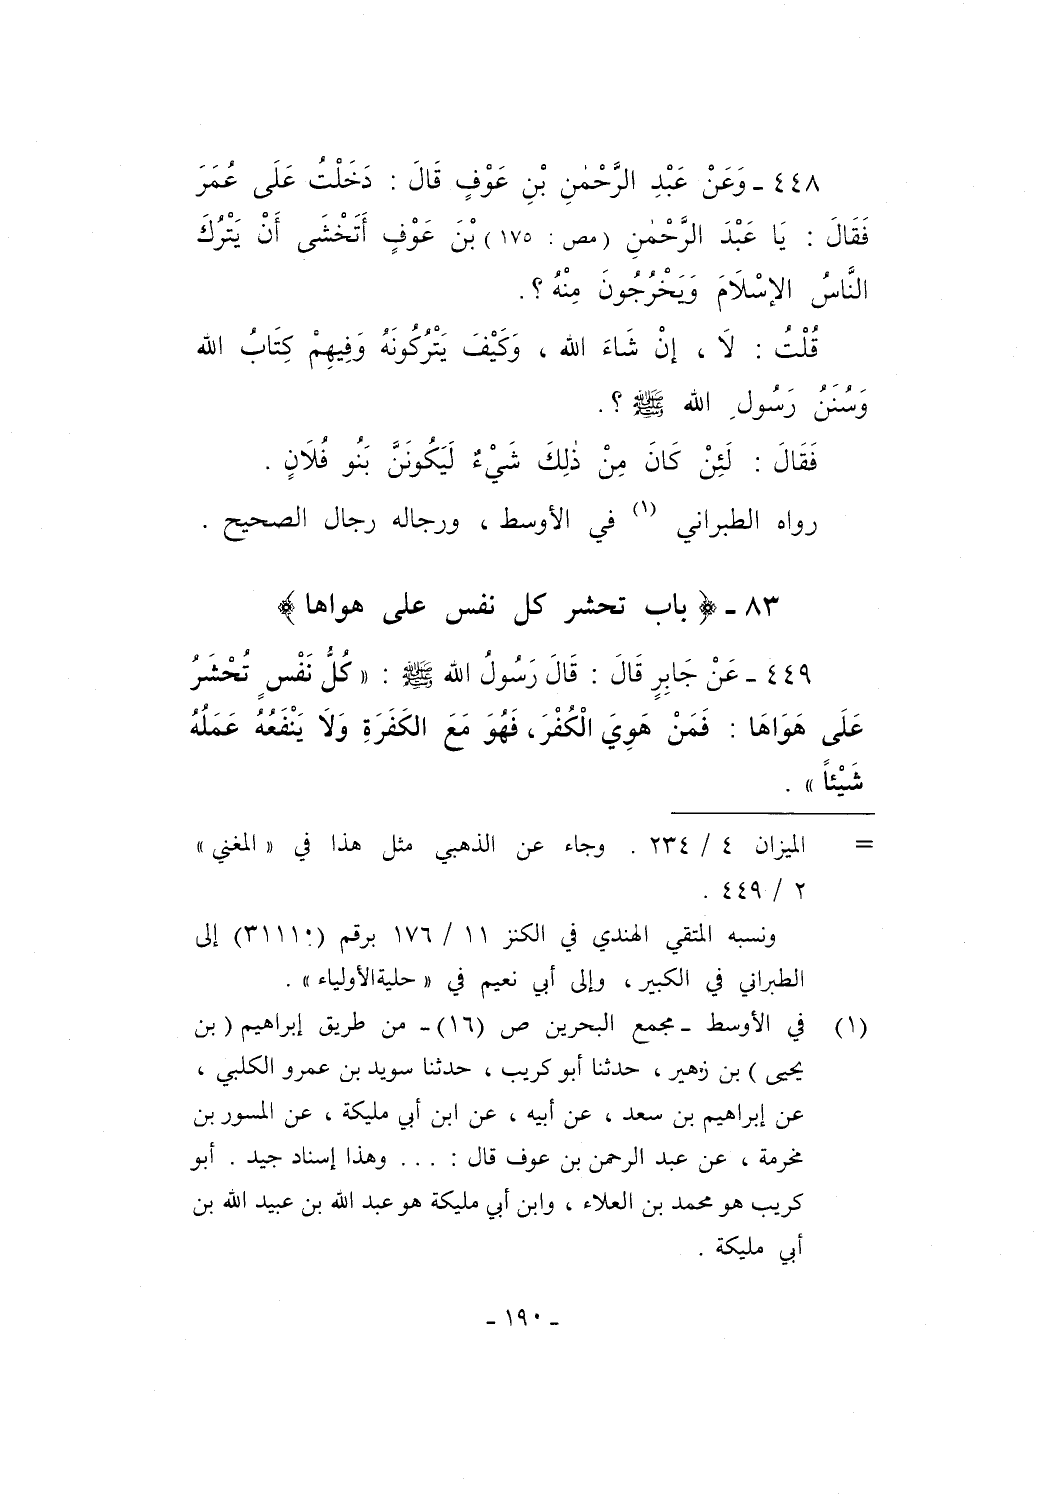 ٤٤٨ ـ وَعَنْ عَبْدِ الرَّحْمٰنِ بْنِ عَوْفٍ قَالَ : دَخَلْتُ عَلَى عُمَرَ
فَقَالَ : يَا عَبْدَ الرَّحْمٰنِ (مص : ١٧٥) بْنَ عَوْفٍ أَتَخْشَى أَنْ يَتْرُكَ
النَّاسُ الإسْلَامَ وَيَخْرُجُونَ مِنْهُ ؟ .
قُلْتُ : لَا ، إنْ شَاءَ الله ، وَكَيْفَ يَتْرُكُونَهُ وَفِيهِمْ كِتَابُ الله
وَسُنَنُ رَسُولِ الله ﷺ ؟ .
فَقَالَ : لَئِنْ كَانَ مِنْ ذٰلِكَ شَيْءٌ لَيَكُونَنَّ بَنُو فُلَانٍ .
رواه الطبراني (١) في الأوسط ، ورجاله رجال الصحيح .
٨٣ ـ ﴿ باب تحشر كل نفس على هواها ﴾
٤٤٩ ـ عَنْ جَابِرٍ قَالَ : قَالَ رَسُولُ الله ﷺ : « كُلُّ نَفْسٍ تُحْشَرُ
عَلَى هَوَاهَا : فَمَنْ هَوِيَ الْكُفْرَ ، فَهُوَ مَعَ الكَفَرَةِ وَلَا يَنْفَعُهُ عَمَلُهُ
شَيْئاً » .
= الميزان ٤ / ٢٣٤ . وجاء عن الذهبي مثل هذا في « المغني »
٢ / ٤٤٩ .
ونسبه المتقي الهندي في الكنز ١١ / ١٧٦ برقم (٣١١١٠) إلى
الطبراني في الكبير ، وإلى أبي نعيم في « حلية الأولياء » .
(١) في الأوسط ـ مجمع البحرين ص (١٦) ـ من طريق إبراهيم ( بن
يحيى ) بن زهير ، حدثنا أبو كريب ، حدثنا سويد بن عمرو الكلبي ،
عن إبراهيم بن سعد ، عن أبيه ، عن ابن أبي مليكة ، عن المسور بن
مخرمة ، عن عبد الرحمن بن عوف قال : ... وهذا إسناد جيد . أبو
كريب هو محمد بن العلاء ، وابن أبي مليكة هو عبد الله بن عبيد الله بن
أبي مليكة .
ـ ١٩٠ ـ